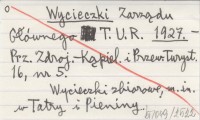 Wycieczki Zarządu
Głównego T.U.R. 1927.-
Prz. Zdroj.-Kąpiel. i Przew. Turyst.
16, nr 5.
Wycieczki zbiorowe, m. in.
w Tatry i Pieniny.